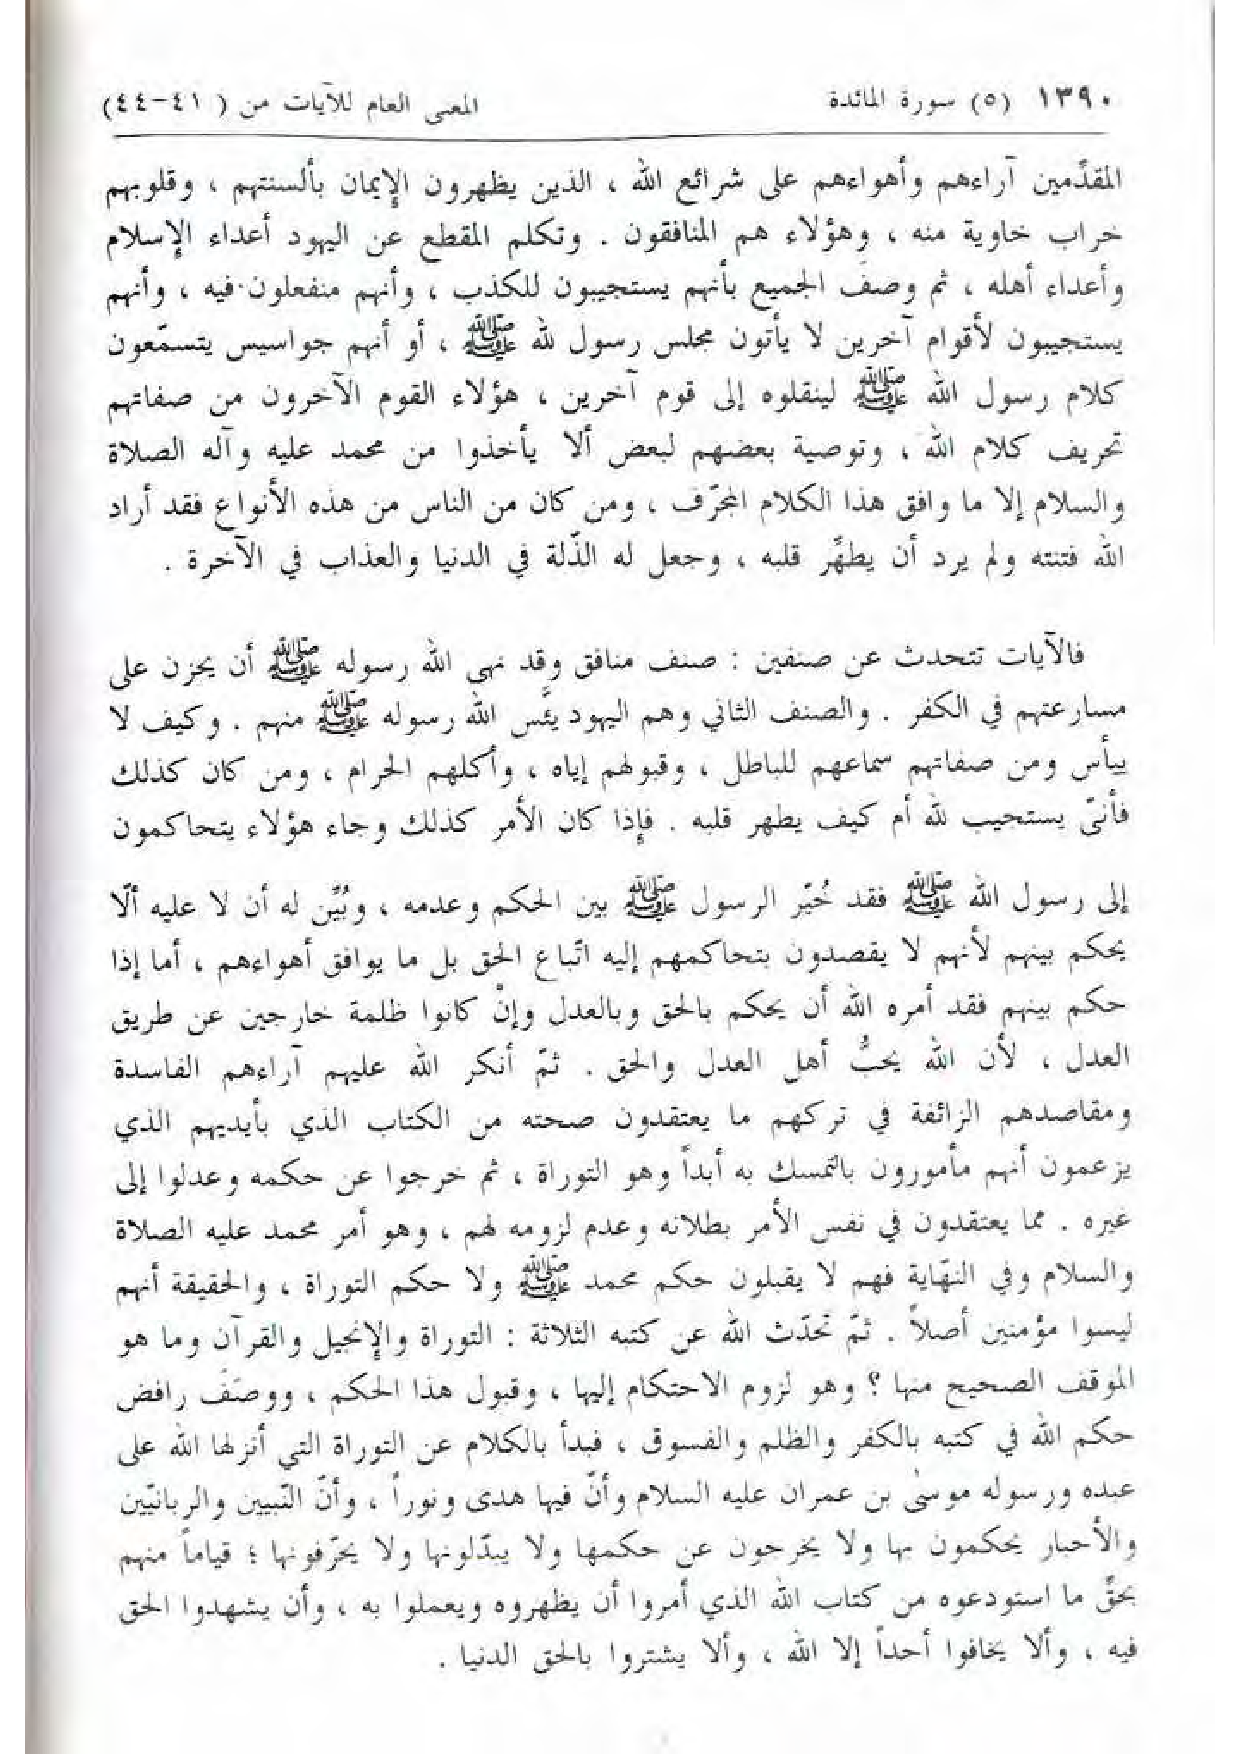 ١٣٩٠ (٥) سورة المائدة المعنى العام للآيات من (٤١-٤٤)
المقدّمين آراءهم وأهواءهم على شرائع الله ، الذين يظهرون الإيمان بألسنتهم ، وقلوبهم
خراب خاوية منه ، وهؤلاء هم المنافقون . وتكلم المقطع عن اليهود أعداء الإسلام
وأعداء أهله ، ثم وصفَ الجميع بأنهم يستجيبون للكذب ، وأنهم منفعلون فيه ، وأنهم
يستجيبون لأقوام آخرين لا يأتون مجلس رسول لله ﷺ ، أو أنهم جواسيس يتسمّعون
كلام رسول الله ﷺ لينقلوه إلى قوم آخرين ، هؤلاء القوم الآخرون من صفاتهم
تحريف كلام الله ، وتوصية بعضهم لبعض ألا يأخذوا من محمد عليه وآله الصلاة
والسلام إلا ما وافق هذا الكلام المحرّف ، ومن كان من الناس من هذه الأنواع فقد أراد
الله فتنته ولم يرد أن يطهَّر قلبه ، وجعل له الذّلة في الدنيا والعذاب في الآخرة .
فالآيات تتحدث عن صنفين : صنف منافق وقد نهى الله رسوله ﷺ أن يحزن على
مسارعتهم في الكفر . والصنف الثاني وهم اليهود يئَّس الله رسوله ﷺ منهم . وكيف لا
ييأس ومن صفاتهم سماعهم للباطل ، وقبولهم إياه ، وأكلهم الحرام ، ومن كان كذلك
فأنىّ يستحيب لله أم كيف يطهر قلبه . فإذا كان الأمر كذلك وجاء هؤلاء يتحاكمون
إلى رسول الله ﷺ فقد خُيّر الرسول ﷺ بين الحكم وعدمه ، وبُيّن له أن لا عليه ألّا
يحكم بينهم لأنهم لا يقصدون بتحاكمهم إليه اتّباع الحق بل ما يوافق أهواءهم ، أما إذا
حكم بينهم فقد أمره الله أن يحكم بالحق وبالعدل وإنْ كانوا ظلمة خارجين عن طريق
العدل ، لأن الله يحبُّ أهل العدل والحق . ثمّ أنكر الله عليهم آراءهم الفاسدة
ومقاصدهم الزائفة في تركهم ما يعتقدون صحته من الكتاب الذي بأيديهم الذي
يزعمون أنهم مأمورون بالتمسك به أبداً وهو التوراة ، ثم خرجوا عن حكمه وعدلوا إلى
غيره . مما يعتقدون في نفس الأمر بطلانه وعدم لزومه لهم ، وهو أمر محمد عليه الصلاة
والسلام وفي النهّاية فهم لا يقبلون حكم محمد ﷺ ولا حكم التوراة ، والحقيقة أنهم
ليسوا مؤمنين أصلاً . ثمّ تحدّث الله عن كتبه الثلاثة : التوراة والإنجيل والقرآن وما هو
الموقف الصحيح منها ؟ وهو لزوم الاحتكام إليها ، وقبول هذا الحكم ، ووصَفَ رافض
حكم الله في كتبه بالكفر والظلم والفسوق ، فبدأ بالكلام عن التوراة التي أنزلها الله على
عبده ورسوله موسٰى بن عمران عليه السلام وأنّ فيها هدى ونوراً ، وأنّ النّبيين والربانيّين
والأحبار يحكمون بها ولا يخرجون عن حكمها ولا يبدّلونها ولا يحرّفونها ؛ قياماً منهم
بحقِّ ما استودعوه من كتاب الله الذي أمروا أن يظهروه ويعملوا به ، وأن يشهدوا الحق
فيه ، وألا يخافوا أحداً إلا الله ، وألا يشتروا بالحق الدنيا .